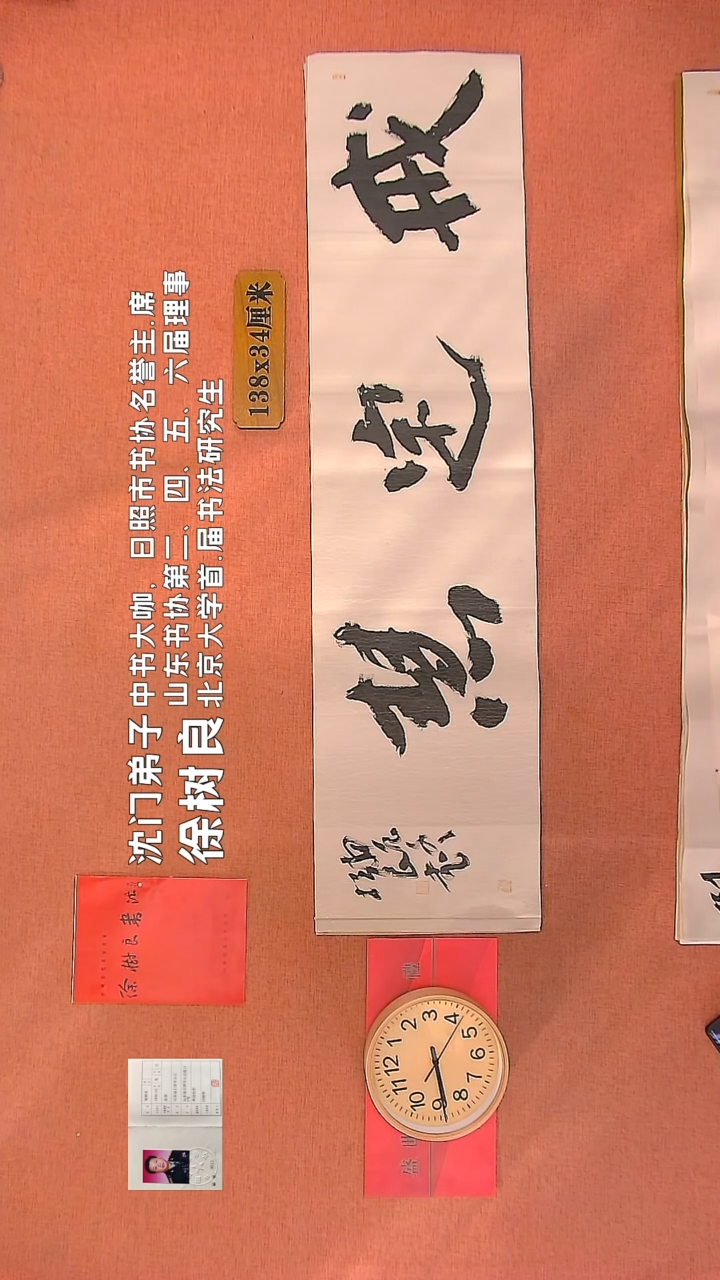 沈门弟子
徐树良
中书大咖,日照市书协名誉主.席
山东书协第二、四、五、六届理事
北京大学首.届书法研究生
138x34厘米
戒定慧
徐树良书法
12
1
2
3
4
5
6
7
8
9
10
11
盛世